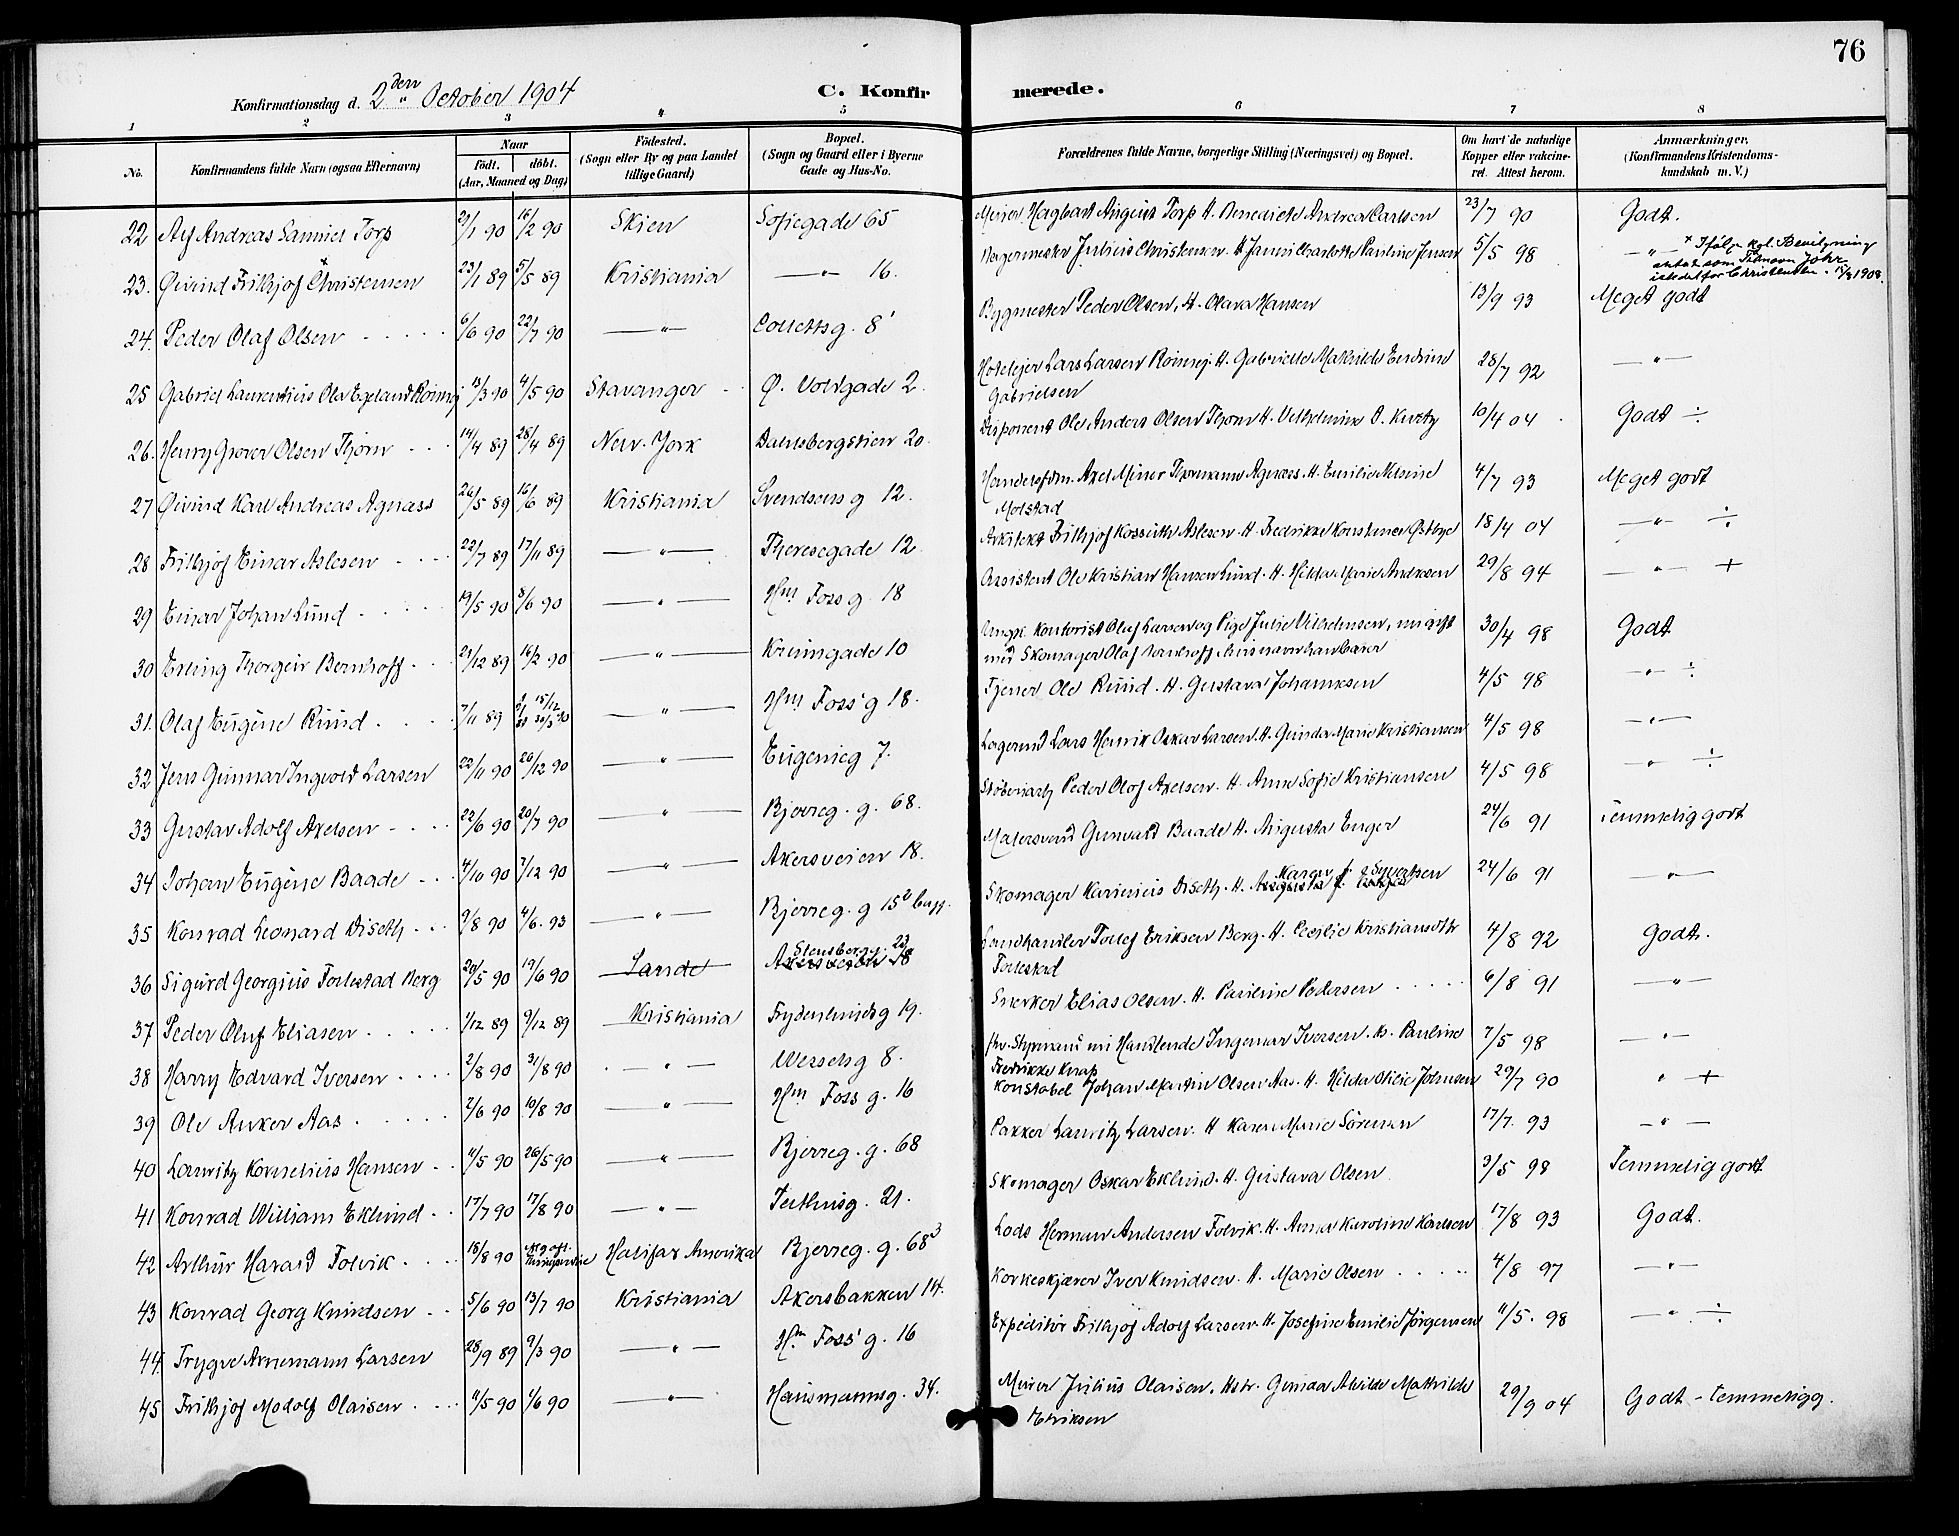 76
Konfirmationsdag d. 2den October 1904
C. Konfir merede.
1 2 3 4 5 6 7 8
No.
Konfirmandens fulde Navn (ogsaa Efternavn)
Naar
födt. döbt.
(Aar, Maaned og Dag)
Födested.
(Sogn eller By og paa Landet
tillige Gaard)
Bopæl.
(Sogn og Gaard eller i Byerne
Gade og Hus-No.
Forældrenes fulde Navne, borgerlige Stilling (Næringsvei) og Bopæl.
Om havt de naturlige
Kopper eller vakcine-
ret. Attest herom.
Anmærkninger.
(Konfirmandens Kristendoms-
kundskab m. V.)
22 Alf Andreas Samuel Torp 29/1 90 16/2 90 Skien Sofiegade 65 Murer Hagbart August Torp H. Benedicte Andrea Carlsen 23/7 90 Godt.
23. Øivind Frithjof Christensen 23/1 89 5/5 89 Kristiania —"— 16. Julius Christensen H. Charlotte Pauline Jensen 5/5 98 —"— × Ifølge kgl. Bevilgning
antat som Tilnavn
istedetfor Christensen. 1908.
24. Peder Olaf Olsen 6/6 90 22/7 90 —"— Collettsg. 8 Bygmester Peder Olsen, H. Olava Hansen 13/9 93 Meget godt
25 Gabriel Laurentius Ola Egeland Romsej 13/3 90 4/5 90 Stavanger Ø. Voldgade 2. Hotelejer Lars Larsen Romsej. H. Gabrielle Mathilde Endrine
Gabrielsen 28/7 92 —"—
26. Henry Grover Olsen Thorn 14/4 89 28/4 89 New-York Dalsbergstien 20. Disponent Ole Anders Olsen Thorn H. Vilhelmine O. 10/4 04 Godt ÷
27 Øivind Karl Andreas Agnæss 26/5 89 16/6 89 Kristiania Svendsens g 12. Handelsfdm. Axel Thormann Agnæss. H. Emilie Nilsine
Molstad 4/7 93 Meget godt
28 Frithjof Einar Aslesen 22/7 89 17/11 89 —"— Theresegade 12. Arkitekt Frithjof Kossuth Aslesen. H. Fredrikke Konstance Østbye 18/4 04 —"— ÷
29 Einar Johan Lund 19/5 90 8/6 90 —"— Hm Foss g. 18 Assistent Ole Kristian Hansen Lund. H. Hilda Marie Andresen 29/8 94 —"— +
30 Erling Thorgeir Bernhoff 29/12 89 16/2 90 —"— Krumgade 10 Ungk. Kontorist Oluf Larsen og Pige Julie Vilhelmsen, nu gift
med Skomager Olaf Bernhoff 30/4 98 Godt
31. Olaf Eugène Ruud 7/11 89 —"— Hm Foss' g 18. Tjener Ole Ruud. H. Gustava Johannesen 4/5 98 —"— ÷
32 Jens Gunnar Ingvold Larsen 22/11 90 26/12 90 —"— Eugenieg 7. Lagermd Lars Henrik Oskar Larsen. H. Gunda Marie Kristiansen 4/5 98 —"—
33 Gustav Adolf Axelsen 22/6 90 20/7 90 —"— Bjerreg. g. 68. Peder Olof Axelsen. H. Anne Sofie Kristiansen 4/5 98 —"— ÷
34 Johan Eugène Baade 4/10 90 7/12 90 —"— Akersveien 18. Malersvend Gunvald Baade H. Augusta Enger 24/6 91 Temmelig godt
35 Konrad Leonard Diseth 9/8 90 4/6. 93 —"— Bjerreg. g 15 Skomager Karinius Diseth. H. Karen J. Syvertsen 24/6 91 —"—
36 Sigurd Georgius Torlestad Berg 20/5 90 19/6 90 Sande Stensberg. 23 Landhandler Torlef Eriksen Berg. H. Cecilie Kristiansdtr
Torlestad 4/8 92 Godt.
37 Peder Oluf Eliasen 1/12 89 9/12 89 Kristiania Frydenlundsg 19. Snekker Elias Olsen. H. Pauline Pedersen 6/8 91 —"—
38 Harry Edvard Iversen 2/8 90 31/8 90 —"— Wesselsg 8. fhv. Styrmand nu Handlende Ingemar Iversen. H. Pauline
Fredrikke Knap 7/5 98 —"—
39 Ole Anker Aas 2/6 90 10/8 90 —"— Hm Foss g. 16 Konstabel Johan Martin Olsen Aas. H. Hilda Otilie Johnsen 29/7 90 " +
40 Lauritz Kornelius Hansen 11/5 90 26/5 90 —"— Bjerreg. g. 68 Pakker Lauritz Larsen. H Karen Marie Sörensen 17/7. 93 —"—
41 Konrad William Eklund 17/7 90 17/8 90 —"— Telthusg. 21. Skomager Oskar Eklund. H. Gustava Olsen 3/5 98 Temmelig godt
42 Arthur Harald Tolvik 18/8 90 Halifax Amerika Bjerreg. g. 68 3 Lods Herman Andersen Tolvik. H. Anna Karoline Karlsen 17/8 93 Godt.
43 Konrad Georg Knudsen 5/6 90 13/7 90 Kristiania Akersbakken 14. Korkeskjærer Iver Knudsen. H. Marie Olsen 4/8 97 —"—
44. Trygve Arnemann Larsen 28/9 89 9/3 90 —"— Hm Foss' g. 16 Expeditör Frithjof Adolf Larsen. H. Josefine Emilie Jörgensen 11/5. 98 —"— ÷
45 Frithjof Modolf Olaisen 11/5 90 1/6 90 —"— Hausmannsg. 34. Murer Julius Olaisen. Hstr. Gunda Alvilde Mathilde
Eriksen 29/9 04 Godt - temmeligg.